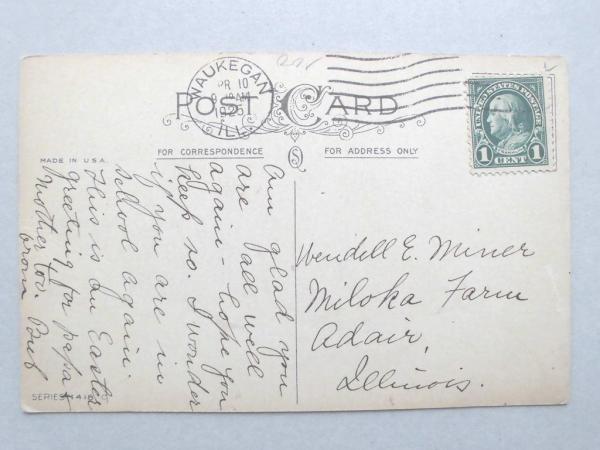 WAUKEGAN
APR 10
1925
ILL.
UNITED STATES POSTAGE
1 CENT 1
POST CARD
FOR CORRESPONDENCE
FOR ADDRESS ONLY
MADE IN U.S.A.
Am glad you
are all well
again - hope you
keep so. I wonder
if you are in
school again.
This is an Easter
greeting for papa &
Mother too.
from
Wendell E. Miner
Miloka Farm
Adair,
Illinois.
SERIES